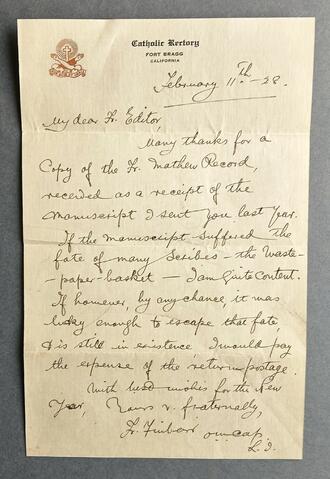 Catholic Rectory
FORT BRAGG
CALIFORNIA
February 11th - 28.
My dear Fr. Editor,
Many thanks for a
Copy of the Fr. Mathew Record,
received as a receipt of the
Manuscript I sent you last Year.
If the manuscript suffered the
fate of many scribes - the Waste-
-paper-basket - I am quite content.
If however, by any chance, it was
lucky enough to escape that fate,
& is still in existence I would pay
the expense of the return postage.
With best wishes for the New
Year, Yours v. fraternally,
Fr. Finbarr o.m.cap.